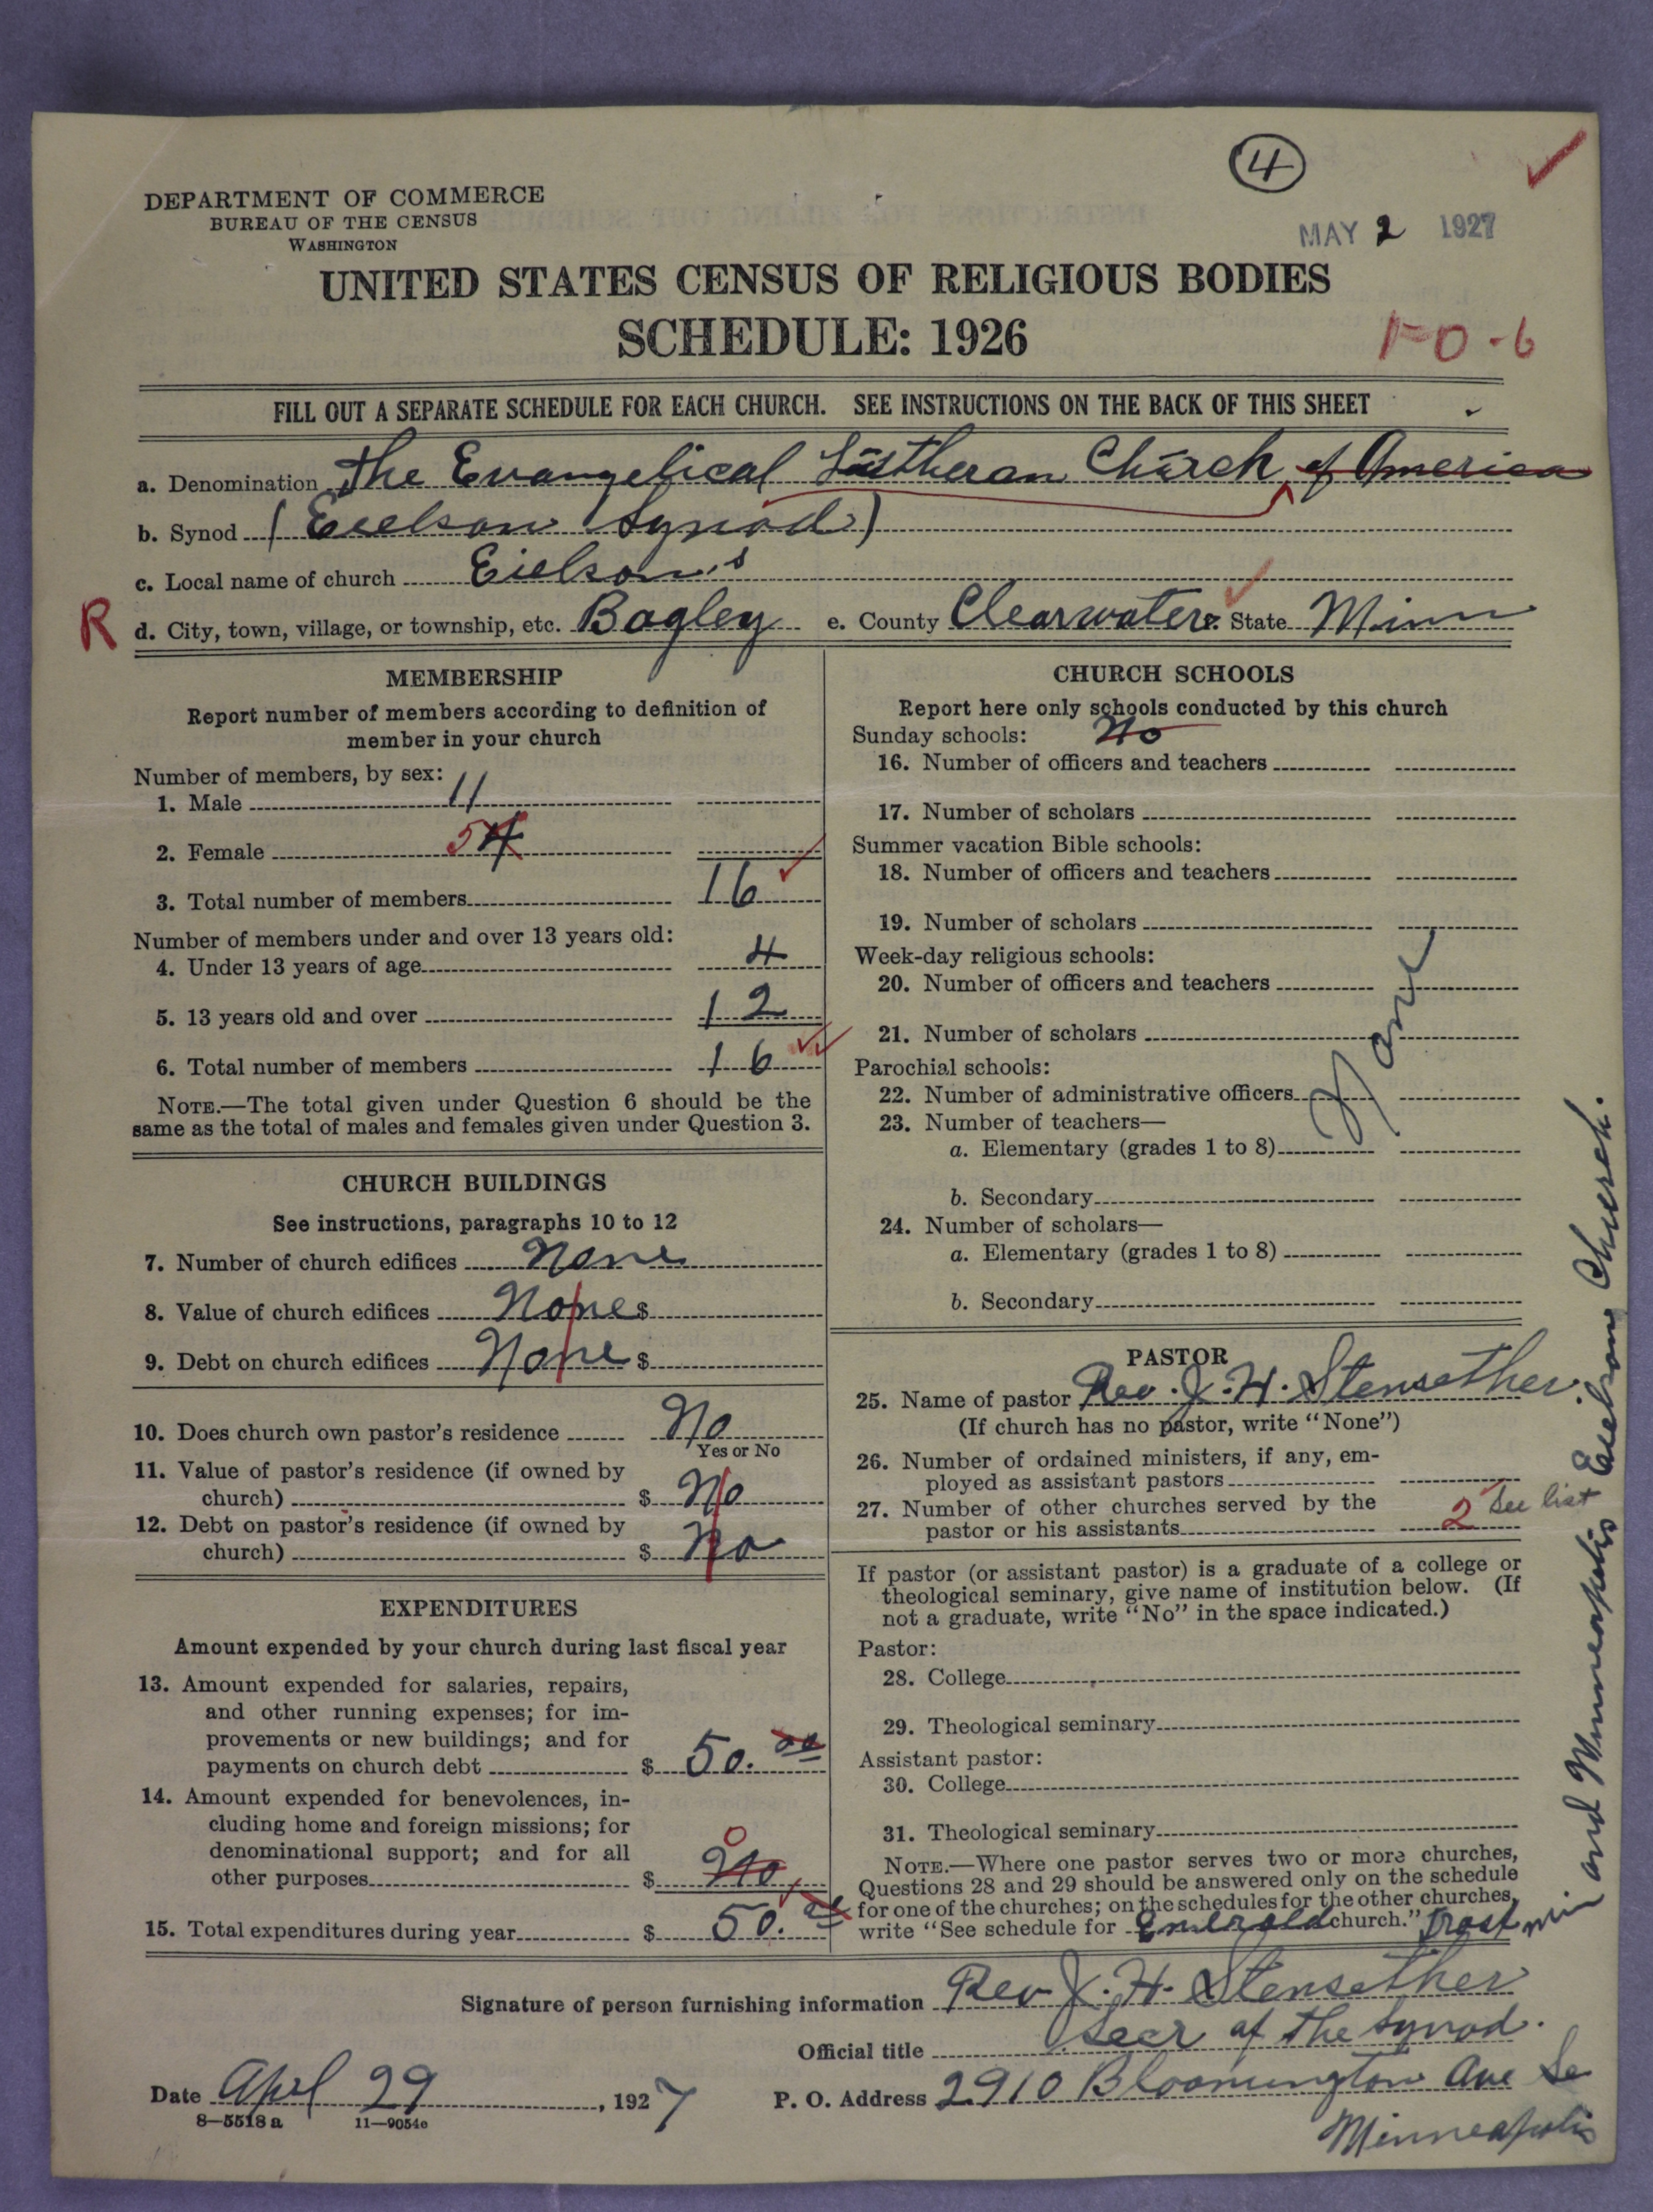 4
DEPARTMENT OF COMMERCE
BUREAU OF THE CENSUS
WASHINGTON
MAY 2 1927
UNITED STATES CENSUS OF RELIGIOUS BODIES
SCHEDULE: 1926
1-0-6
FILL OUT A SEPARATE SCHEDULE FOR EACH CHURCH. SEE INSTRUCTIONS ON THE BACK OF THIS SHEET
a. Denomination The Evangelical Lutheran Church of America
b. Synod (Eielson Synod)
c. Local name of church Eielson's
R d. City, town, village, or township, etc. Bagley e. County Clearwater State Minn
MEMBERSHIP
Report number of members according to definition of
member in your church
Number of members, by sex:
1. Male 11
2. Female 5 4
3. Total number of members 16
Number of members under and over 13 years old:
4. Under 13 years of age 4
5. 13 years old and over 12
6. Total number of members 16
NOTE.—The total given under Question 6 should be the
same as the total of males and females given under Question 3.
CHURCH BUILDINGS
See instructions, paragraphs 10 to 12
7. Number of church edifices None
8. Value of church edifices None $
9. Debt on church edifices None $
10. Does church own pastor's residence No
Yes or No
11. Value of pastor's residence (if owned by
church) $ No
12. Debt on pastor's residence (if owned by
church) $ No
EXPENDITURES
Amount expended by your church during last fiscal year
13. Amount expended for salaries, repairs,
and other running expenses; for im-
provements or new buildings; and for
payments on church debt $ 50.00
14. Amount expended for benevolences, in-
cluding home and foreign missions; for
denominational support; and for all
0
other purposes $ No
15. Total expenditures during year $ 50.00
CHURCH SCHOOLS
Report here only schools conducted by this church
Sunday schools: No
16. Number of officers and teachers
17. Number of scholars
Summer vacation Bible schools:
18. Number of officers and teachers
19. Number of scholars
Week-day religious schools:
20. Number of officers and teachers
21. Number of scholars
None
Parochial schools:
22. Number of administrative officers
23. Number of teachers—
a. Elementary (grades 1 to 8)
b. Secondary
24. Number of scholars—
a. Elementary (grades 1 to 8)
b. Secondary
PASTOR
25. Name of pastor Rev. J. H. Stensether
(If church has no pastor, write "None")
26. Number of ordained ministers, if any, em-
ployed as assistant pastors
27. Number of other churches served by the
pastor or his assistants 2 See list
If pastor (or assistant pastor) is a graduate of a college or
theological seminary, give name of institution below. (If
not a graduate, write "No" in the space indicated.)
Pastor:
28. College
29. Theological seminary
Assistant pastor:
30. College
31. Theological seminary
NOTE.—Where one pastor serves two or more churches,
Questions 28 and 29 should be answered only on the schedule
for one of the churches; on the schedules for the other churches,
write "See schedule for Emerald church." Trost
Min and Minneapolis Eielsons Church.
Signature of person furnishing information Rev J. H. Stensether
Official title Secr of the Synod.
Date Aprl 29, 1927 P. O. Address 2910 Bloomington Ave So
Minneapolis
8—5518 a 11—9054c